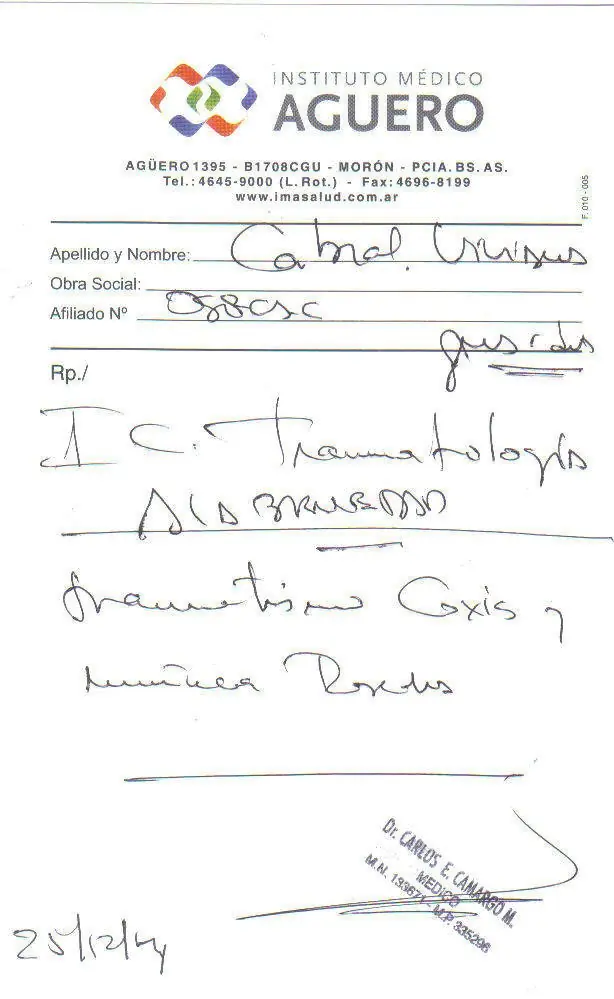 INSTITUTO MÉDICO
AGUERO
AGÜERO 1395 - B1708CGU - MORÓN - PCIA. BS. AS.
Tel.: 4645-9000 (L. Rot.) - Fax: 4696-8199
www.imasalud.com.ar
F. 010 - 005
Apellido y Nombre: Cabral.
Obra Social:
Afiliado Nº
Rp./
I C. Traumatología
traumatismo Coxis y
muñeca
Dr. CARLOS E. CAMARGO M.
MEDICO
M.N. 133671 - M.P. 335296
25/12/14